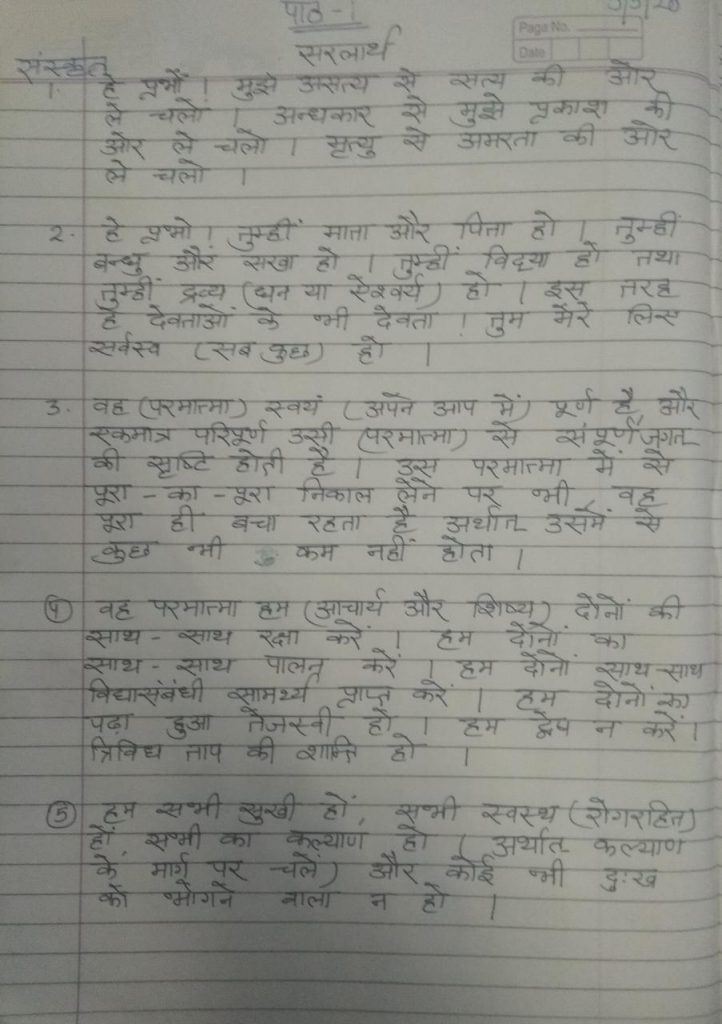 पाठ - 1
Page No.
Date
सरलार्थ
संस्कृत
1. हे प्रभों । मुझे असत्य से सत्य की और
ले चलो । अन्धकार से मुझे प्रकाश की
और ले चलो । मृत्यु से अमरता की और
ले चलो ।
2. हे प्रभो । तुम्हीं माता और पिता हो । तुम्हीं
बन्धु और सखा हो । तुम्हीं विद्या हो तथा
तुम्हीं द्रव्य (धन या ऐश्वर्य) हो । इस तरह
हे देवताओं के भी देवता ! तुम मेरे लिए
सर्वस्व (सब कुछ) हो ।
3. वह (परमात्मा) स्वयं (अपने आप में) पूर्ण है, और
एकमात्र परिपूर्ण उसी (परमात्मा) से संपूर्ण जगत
की सृष्टि होती है । उस परमात्मा में से
पूरा - का - पूरा निकाल लेने पर भी, वह
पूरा ही बचा रहता है अर्थात उसमें से
कुछ भी कम नहीं होता ।
4 वह परमात्मा हम (आचार्य और शिष्य) दोनों की
साथ - साथ रक्षा करें । हम दोनों का
साथ - साथ पालन करें । हम दोनों साथ-साथ
विद्यासंबंधी सामर्थ्य प्राप्त करें । हम दोनों का
पढ़ा हुआ तेजस्वी हो । हम द्वेष न करें ।
त्रिविध ताप की शान्ति हो ।
5 हम सभी सुखी हों, सभी स्वस्थ (रोगरहित)
हों, सभी का कल्याण हो ( अर्थात कल्याण
के मार्ग पर चलें) और कोई भी दुःख
को भोगने वाला न हो ।